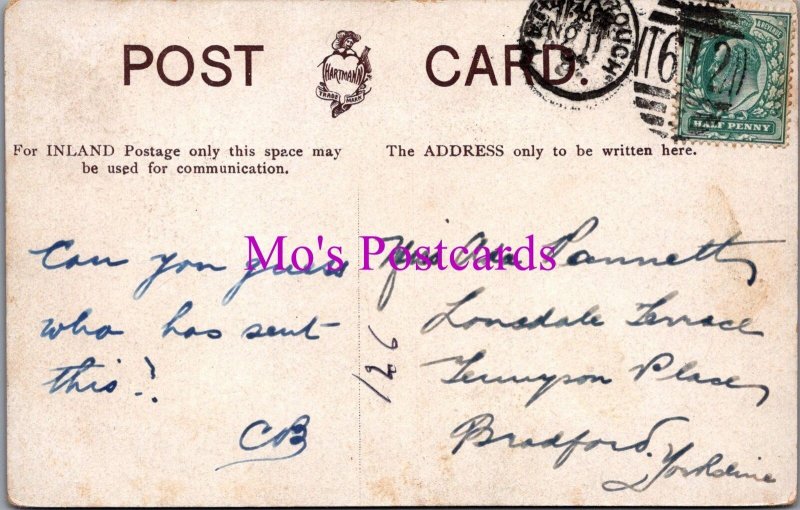 POST CARD.
HARTMANN
TRADE MARK
T67 20
HALF PENNY
For INLAND Postage only this space may
be used for communication.
The ADDRESS only to be written here.
Mo's Postcards
Can you guess
who has sent
this?!
CB
126
Miss Pannett
Lonsdale Terrace
Tennyson Place
Bradford.
Yorkshire